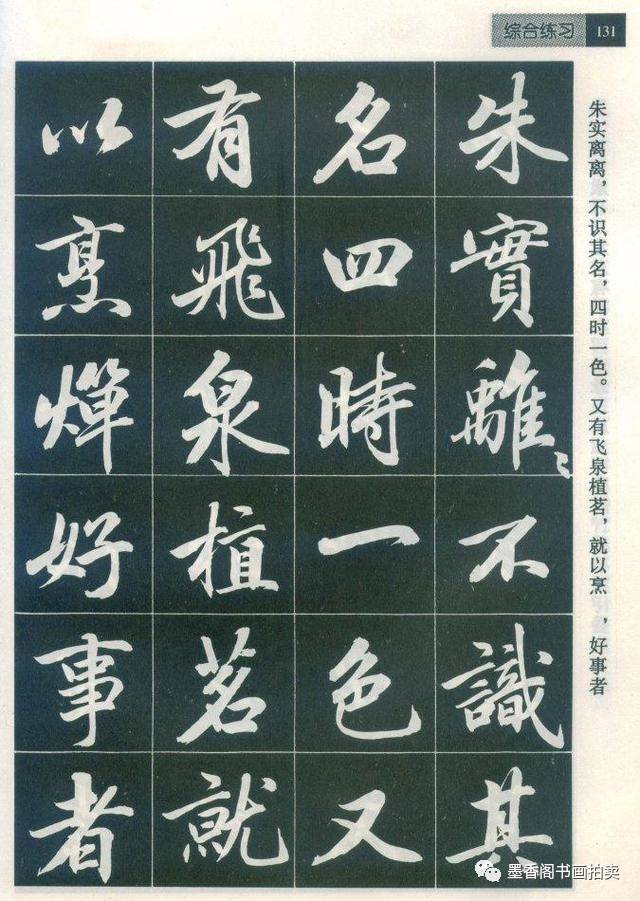 综合练习 131
朱實離〻不識其
名四時一色又
有飛泉植茗就
以烹燀好事者
朱实离离，不识其名，四时一色。又有飞泉植茗，就以烹 ，好事者
墨香阁书画拍卖